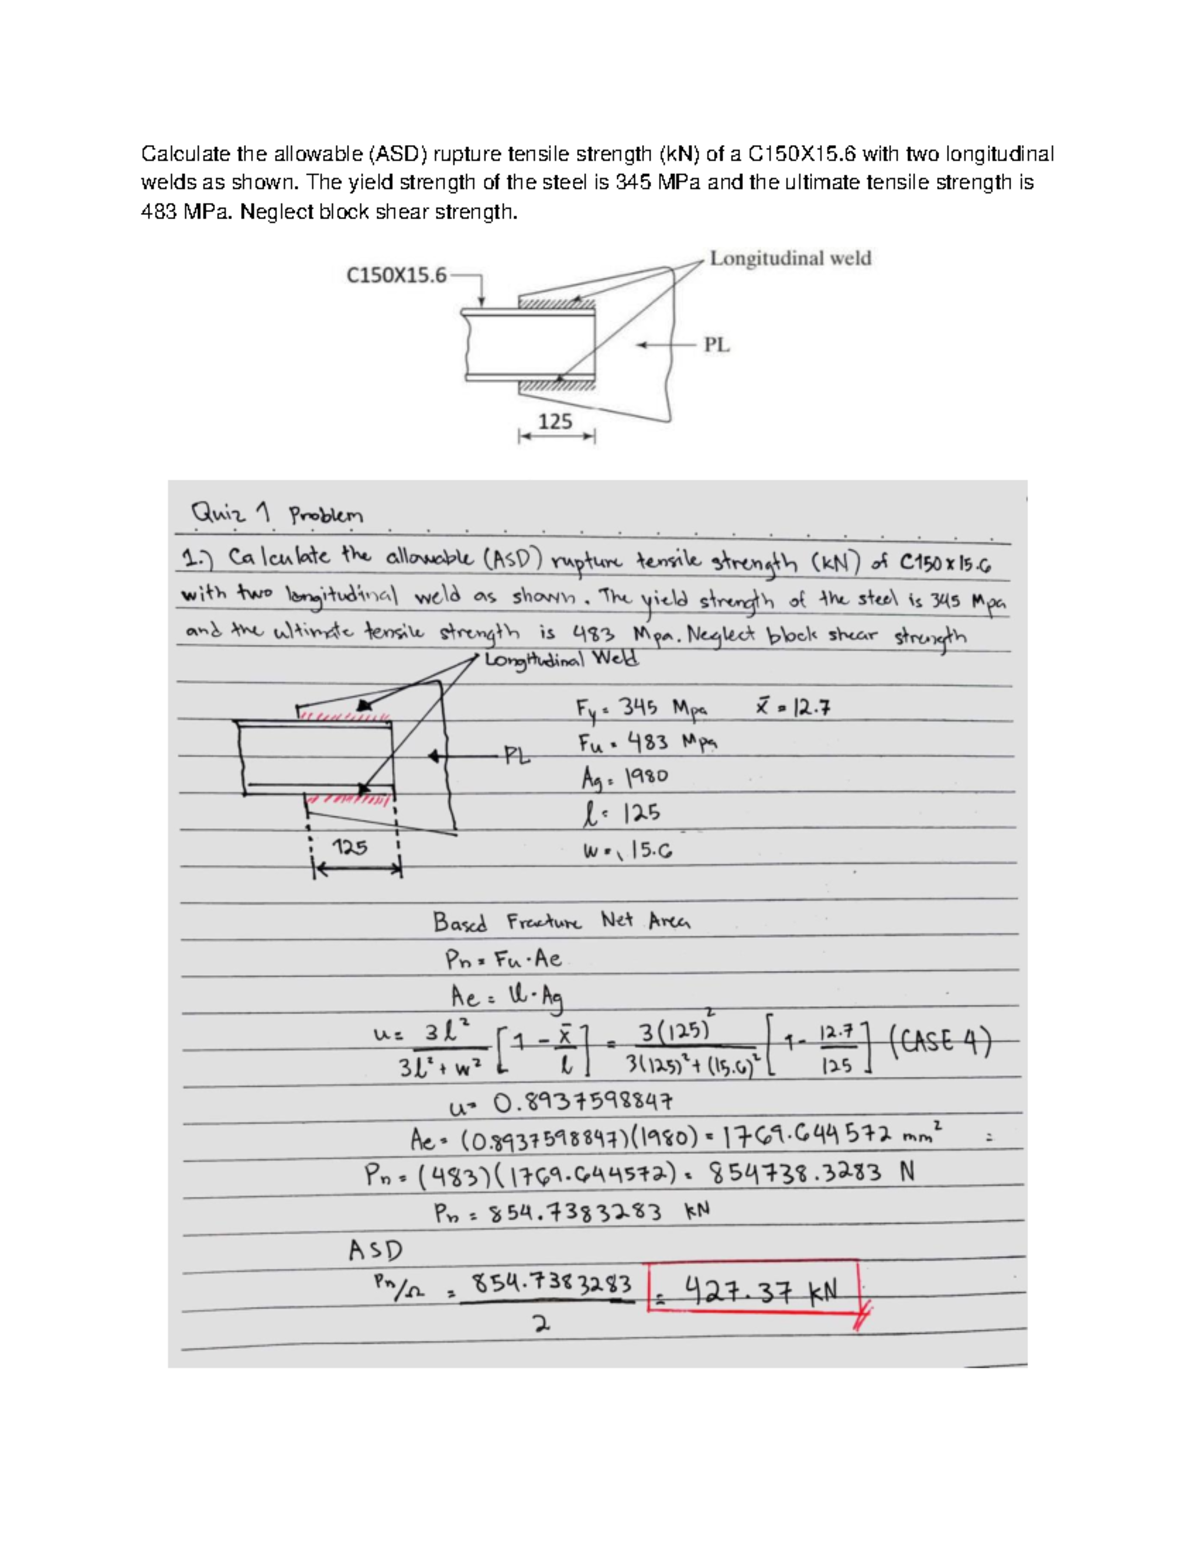 Calculate the allowable (ASD) rupture tensile strength (kN) of a C150X15.6 with two longitudinal
welds as shown. The yield strength of the steel is 345 MPa and the ultimate tensile strength is
483 MPa. Neglect block shear strength.
Longitudinal weld
C150X15.6
PL
125
Quiz 1 Problem
1.) Calculate the allowable (ASD) rupture tensile strength (kN) of C150x15.6
with two longitudinal weld as shown. The yield strength of the steel is 345 Mpa
and the ultimate tensile strength is 483 Mpa. Neglect block shear strength
Longitudinal Weld
Fy = 345 Mpa x̄ = 12.7
Fu = 483 Mpa
PL
Ag = 1980
l = 125
125
w = 15.6
Based Fracture Net Area
Pn = Fu·Ae
Ae = U·Ag
u = 3l²/(3l² + w²) [1 - x̄/l] = 3(125)²/(3(125)² + (15.6)²) [1 - 12.7/125] (CASE 4)
u = 0.8937598847
Ae = (0.8937598847)(1980) = 1769.644572 mm² =
Pn = (483)(1769.644572) = 854738.3283 N
Pn = 854.7383283 kN
ASD
Pn/Ω = 854.7383283/2 = 427.37 kN